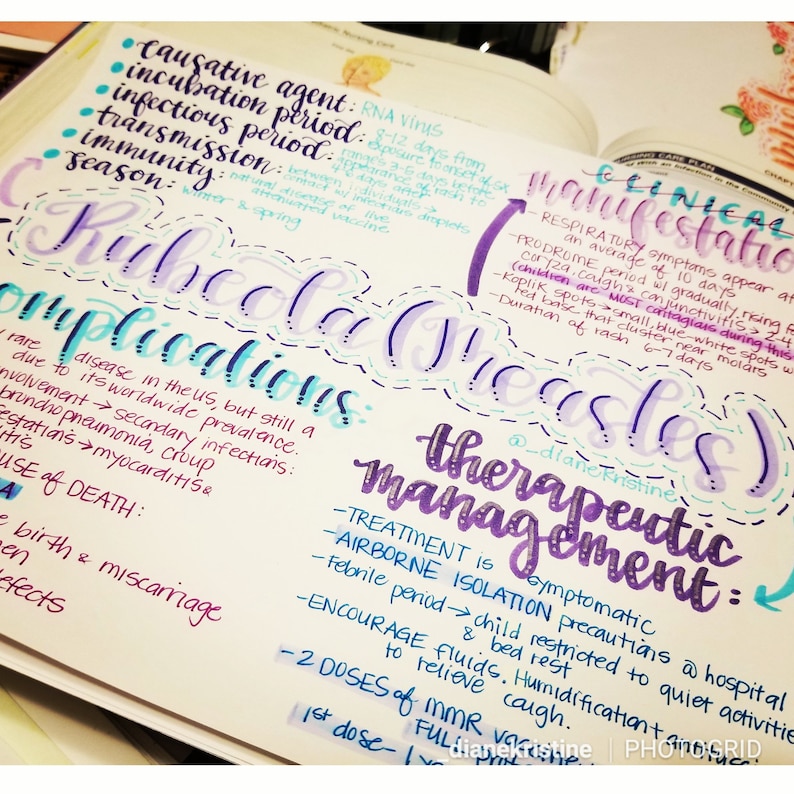 Nursing Care
• causative agent: RNA virus
• incubation period: 8-12 days from
exposure to onset of sx
• infectious period: ranges 3-5 days before
rash to
• transmission: between
contact w/ infectious droplets
individuals →
• immunity: natural disease or live
attenuated vaccine
• season: winter & spring
NURSING CARE PLAN
an Infection in the Community
CLINICAL
manifestatio
- RESPIRATORY symptoms appear
an average of 10 days
- PRODROME period w/ gradually rising
coryza, cough & conjunctivitis →
(children are MOST contagious during this
- Koplik spots → small, blue-white spots w/
red base that cluster near molars
- Duration of rash 6-7 days
Rubeola (Measles)
@_dianekristine
omplications:
rare disease in the US, but still a
due to its worldwide prevalence.
nvolvement → secondary infections:
bronchopneumonia, croup
festations → myocarditis &
itis
USE of DEATH:
A
e birth & miscarriage
men
defects
therapeutic
management:
- TREATMENT is symptomatic
- AIRBORNE ISOLATION precautions @ hospital
- Febrile period → child restricted to quiet activities
& bed rest
- ENCOURAGE fluids. Humidification +
to relieve cough.
- 2 DOSES of MMR vaccine
FULL
1st dose-
_dianekristine | PHOTOGRID